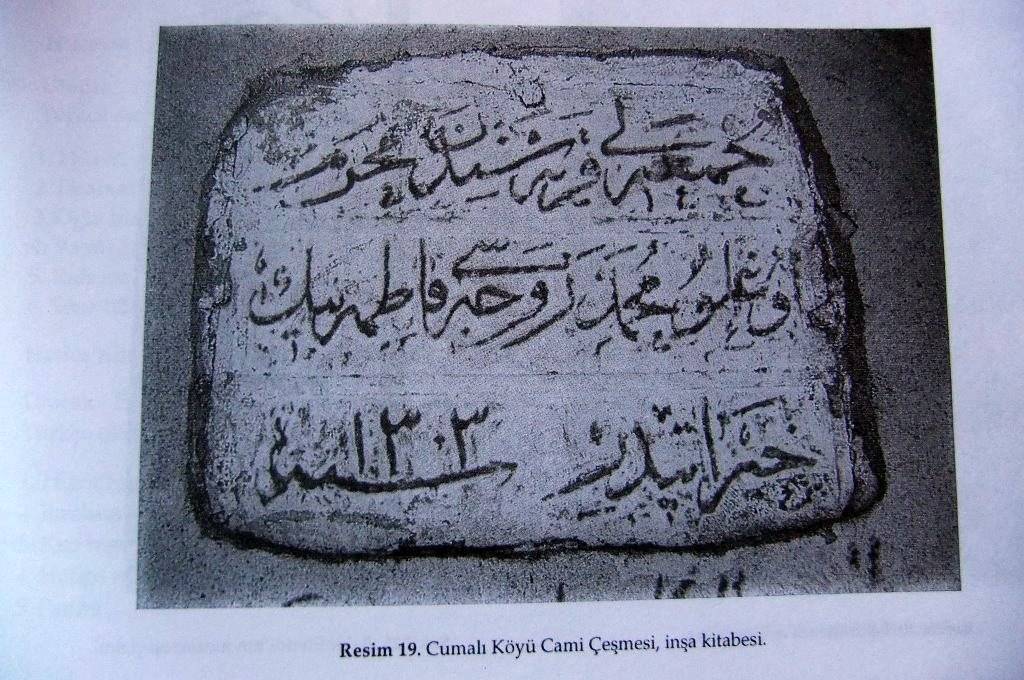 جمعه لى قريه سندن محرم
اوغلو محمد زوجه سى فاطمه نيك
خيراتيدر سنه ١٣٠٣
Resim 19. Cumalı Köyü Cami Çeşmesi, inşa kitabesi.